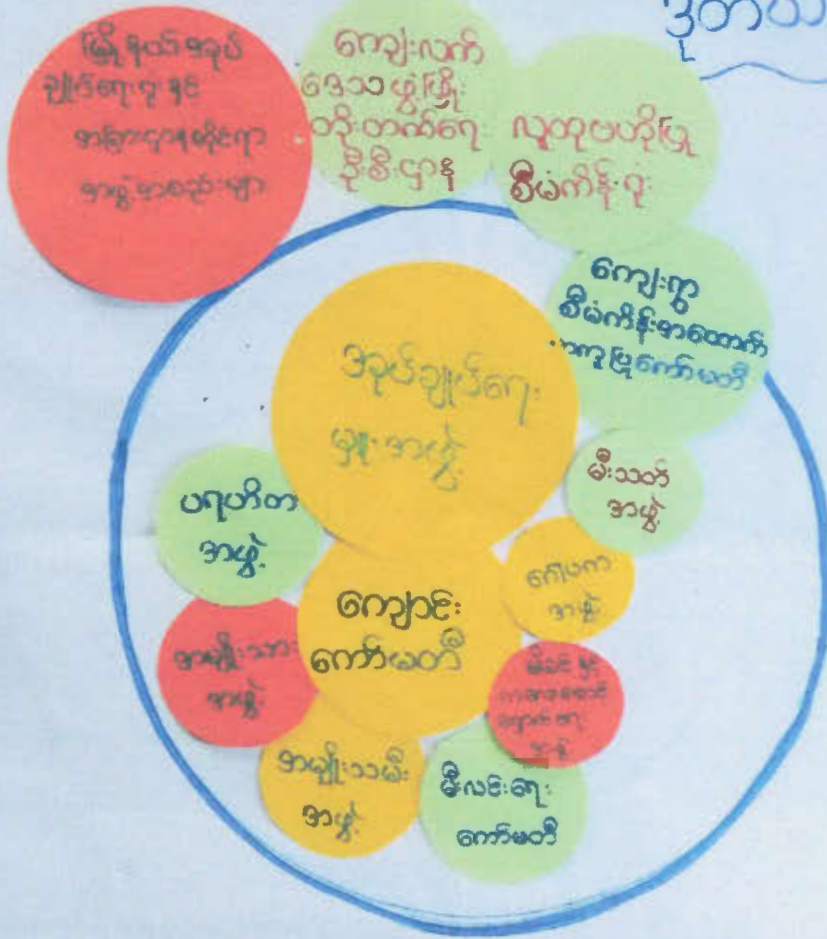 ဒုတိယ
မြို့နယ်အုပ်
ချုပ်ရေးမှူးနှင့်
အခြားဌာနဆိုင်ရာ
အဖွဲ့အစည်းများ
ကျေးလက်
ဒေသဖွံ့ဖြိုး
တိုးတက်ရေး
ဦးစီးဌာန
လူထုဗဟိုပြု
စီမံကိန်းရုံး
ကျေးရွာ
စီမံကိန်းအထောက်
အကူပြုကော်မတီ
အုပ်ချုပ်ရေး
မှူးအဖွဲ့
မီးသတ်
အဖွဲ့
ပရဟိတ
အဖွဲ့
ဂေါပက
အဖွဲ့
ကျောင်း
ကော်မတီ
အမျိုးသား
အဖွဲ့
မိခင်နှင့်
ကလေးစောင့်
ရှောက်ရေး
အဖွဲ့
အမျိုးသမီး
အဖွဲ့
မီးလင်းရေး
ကော်မတီ